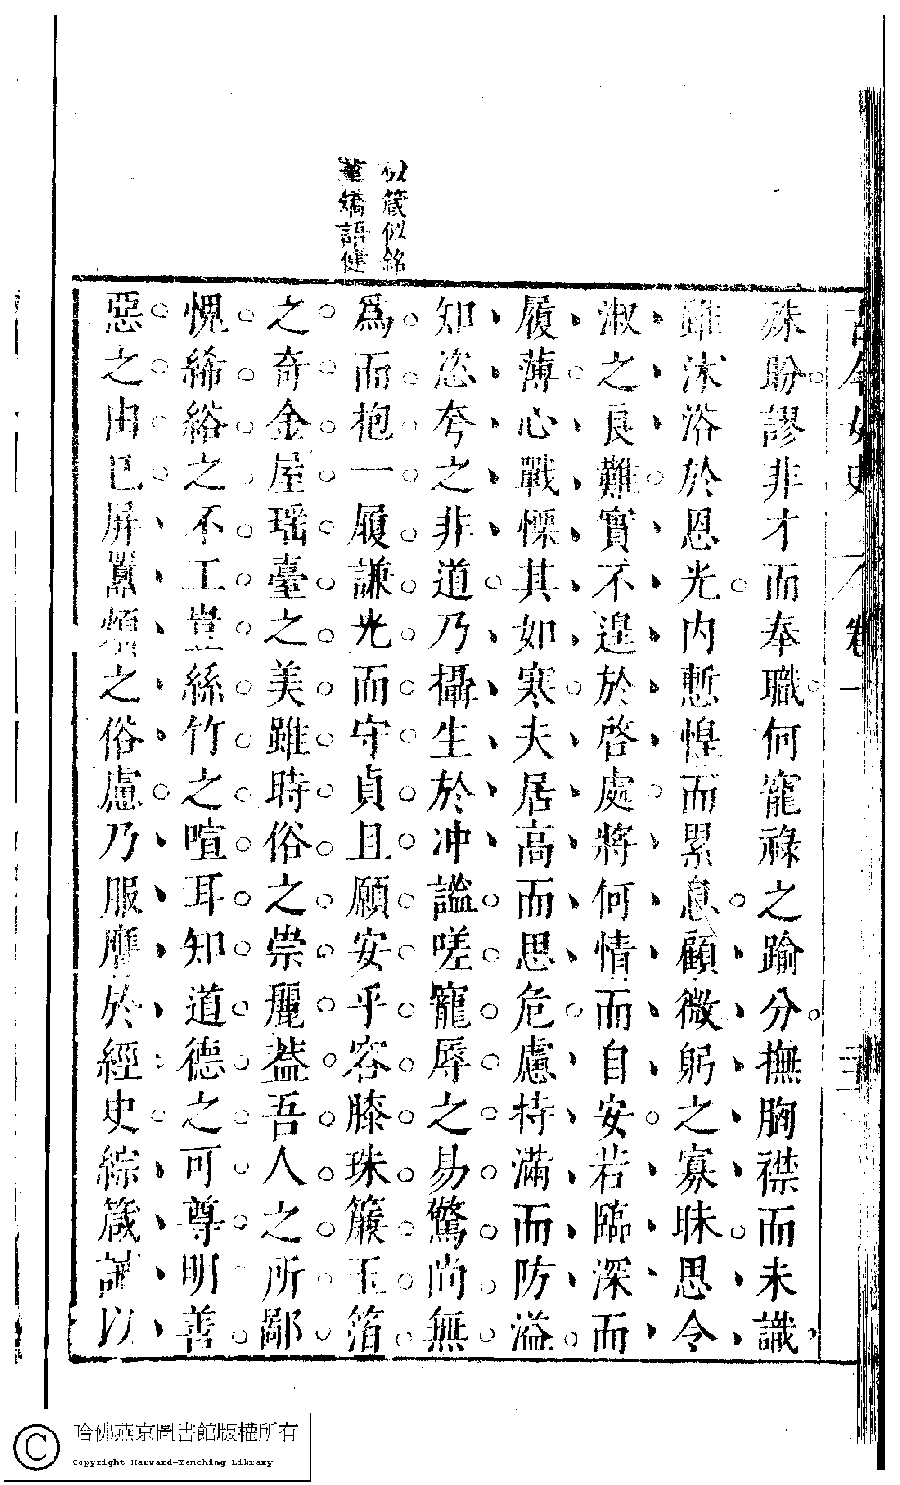 似箴似銘
語健
殊盼謬非才而奉職何寵祿之踰分撫胸襟而未識
雖沐浴於恩光内慙惶而累息顧微躬之寡昧思令
淑之良難實不遑於啓處將何情而自安若臨深而
履薄心戰慄其如寒夫居高而思危慮持滿而防溢
知恣夸之非道乃攝生於冲謐嗟寵辱之易驚尚無
爲而抱一履謙光而守貞且願安乎容膝珠簾玉箔
之奇金屋瑶臺之美雖時俗之崇麗葢吾人之所鄙
愧絺綌之不工豈絲竹之喧耳知道德之可尊明善
惡之由已屏囂煩之俗慮乃服膺於經史綜箴誡以
古今女史 卷一 二三
哈佛燕京圖書館版權所有
Copyright Harvard-Yenching Library